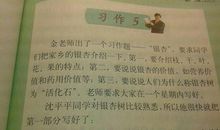 习作5
金老师出了一个习作题——“银杏”，要求同学
们把家乡的银杏介绍一下，第一，要介绍枝、干、叶、
花、果的特点；第二，要说说银杏的价值，如营养价
值和药用价值等；第三，要说说人们为什么称银杏树
为“活化石”。老师要求大家在一个星期内写好。
沈平平同学对银杏树比较熟悉，所以他很快就把
第一部分写好了：